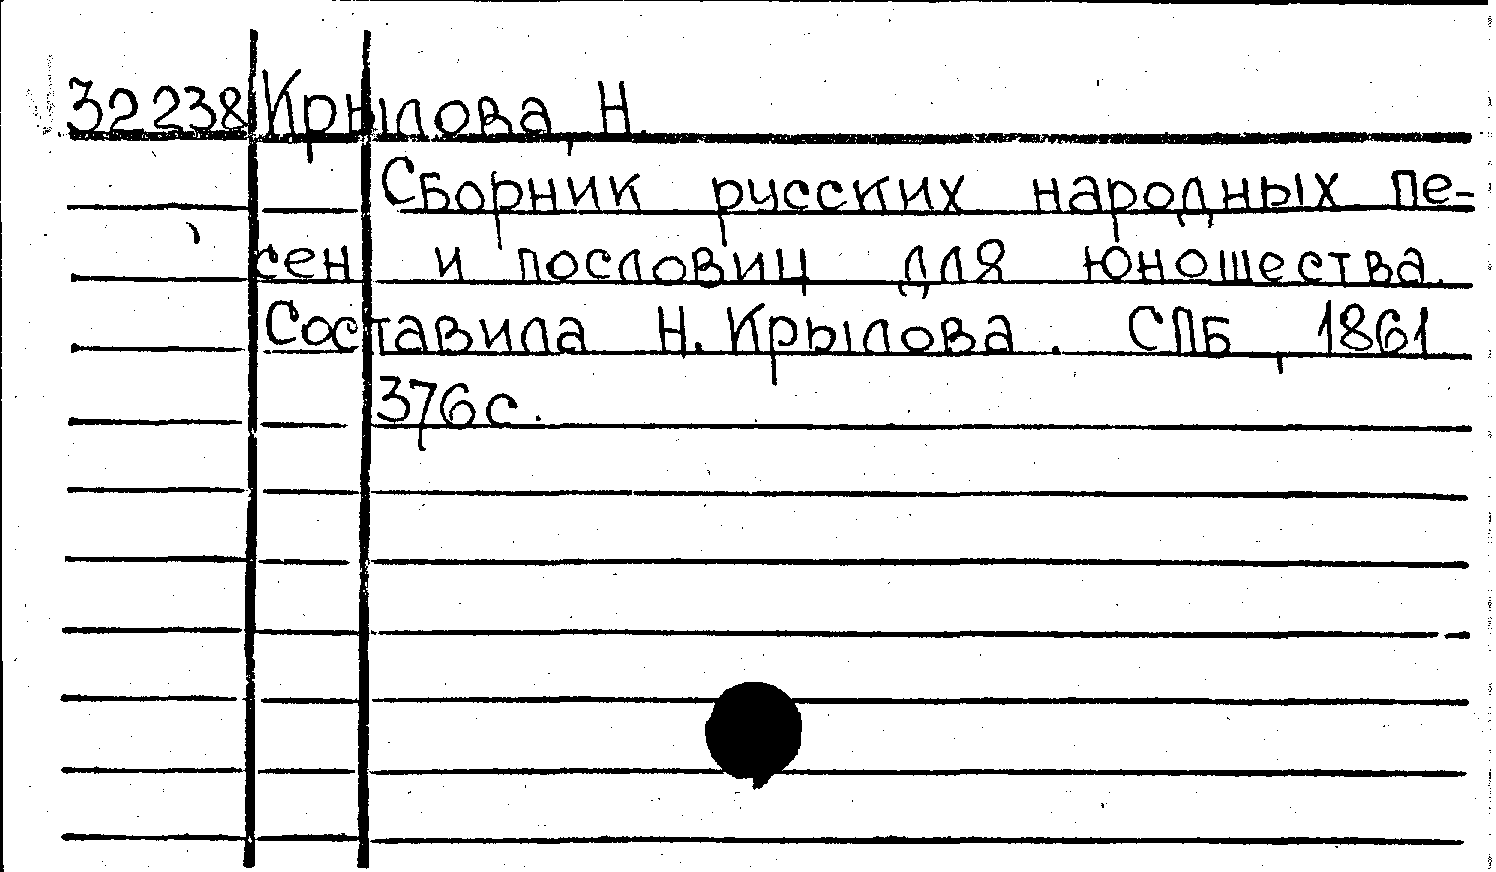 32238 Крылова, Н.
Сборник русских народных пе-
сен и пословиц для юношества.
Составила Н. Крылова. СПБ, 1861
376 с.